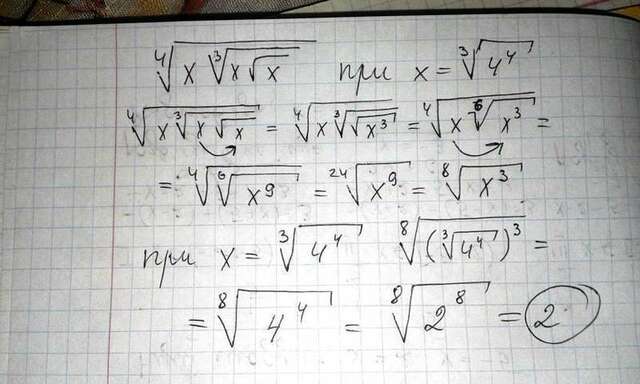 ⁴√(x ³√(x √x)) при x = ³√(4⁴)
⁴√(x ³√(x √x)) = ⁴√(x ³√(√(x³))) = ⁴√(x ⁶√(x³)) =
= ⁴√(⁶√(x⁹)) = ²⁴√(x⁹) = ⁸√(x³)
при x = ³√(4⁴) ⁸√((³√(4⁴))³) =
= ⁸√(4⁴) = ⁸√(2⁸) = 2